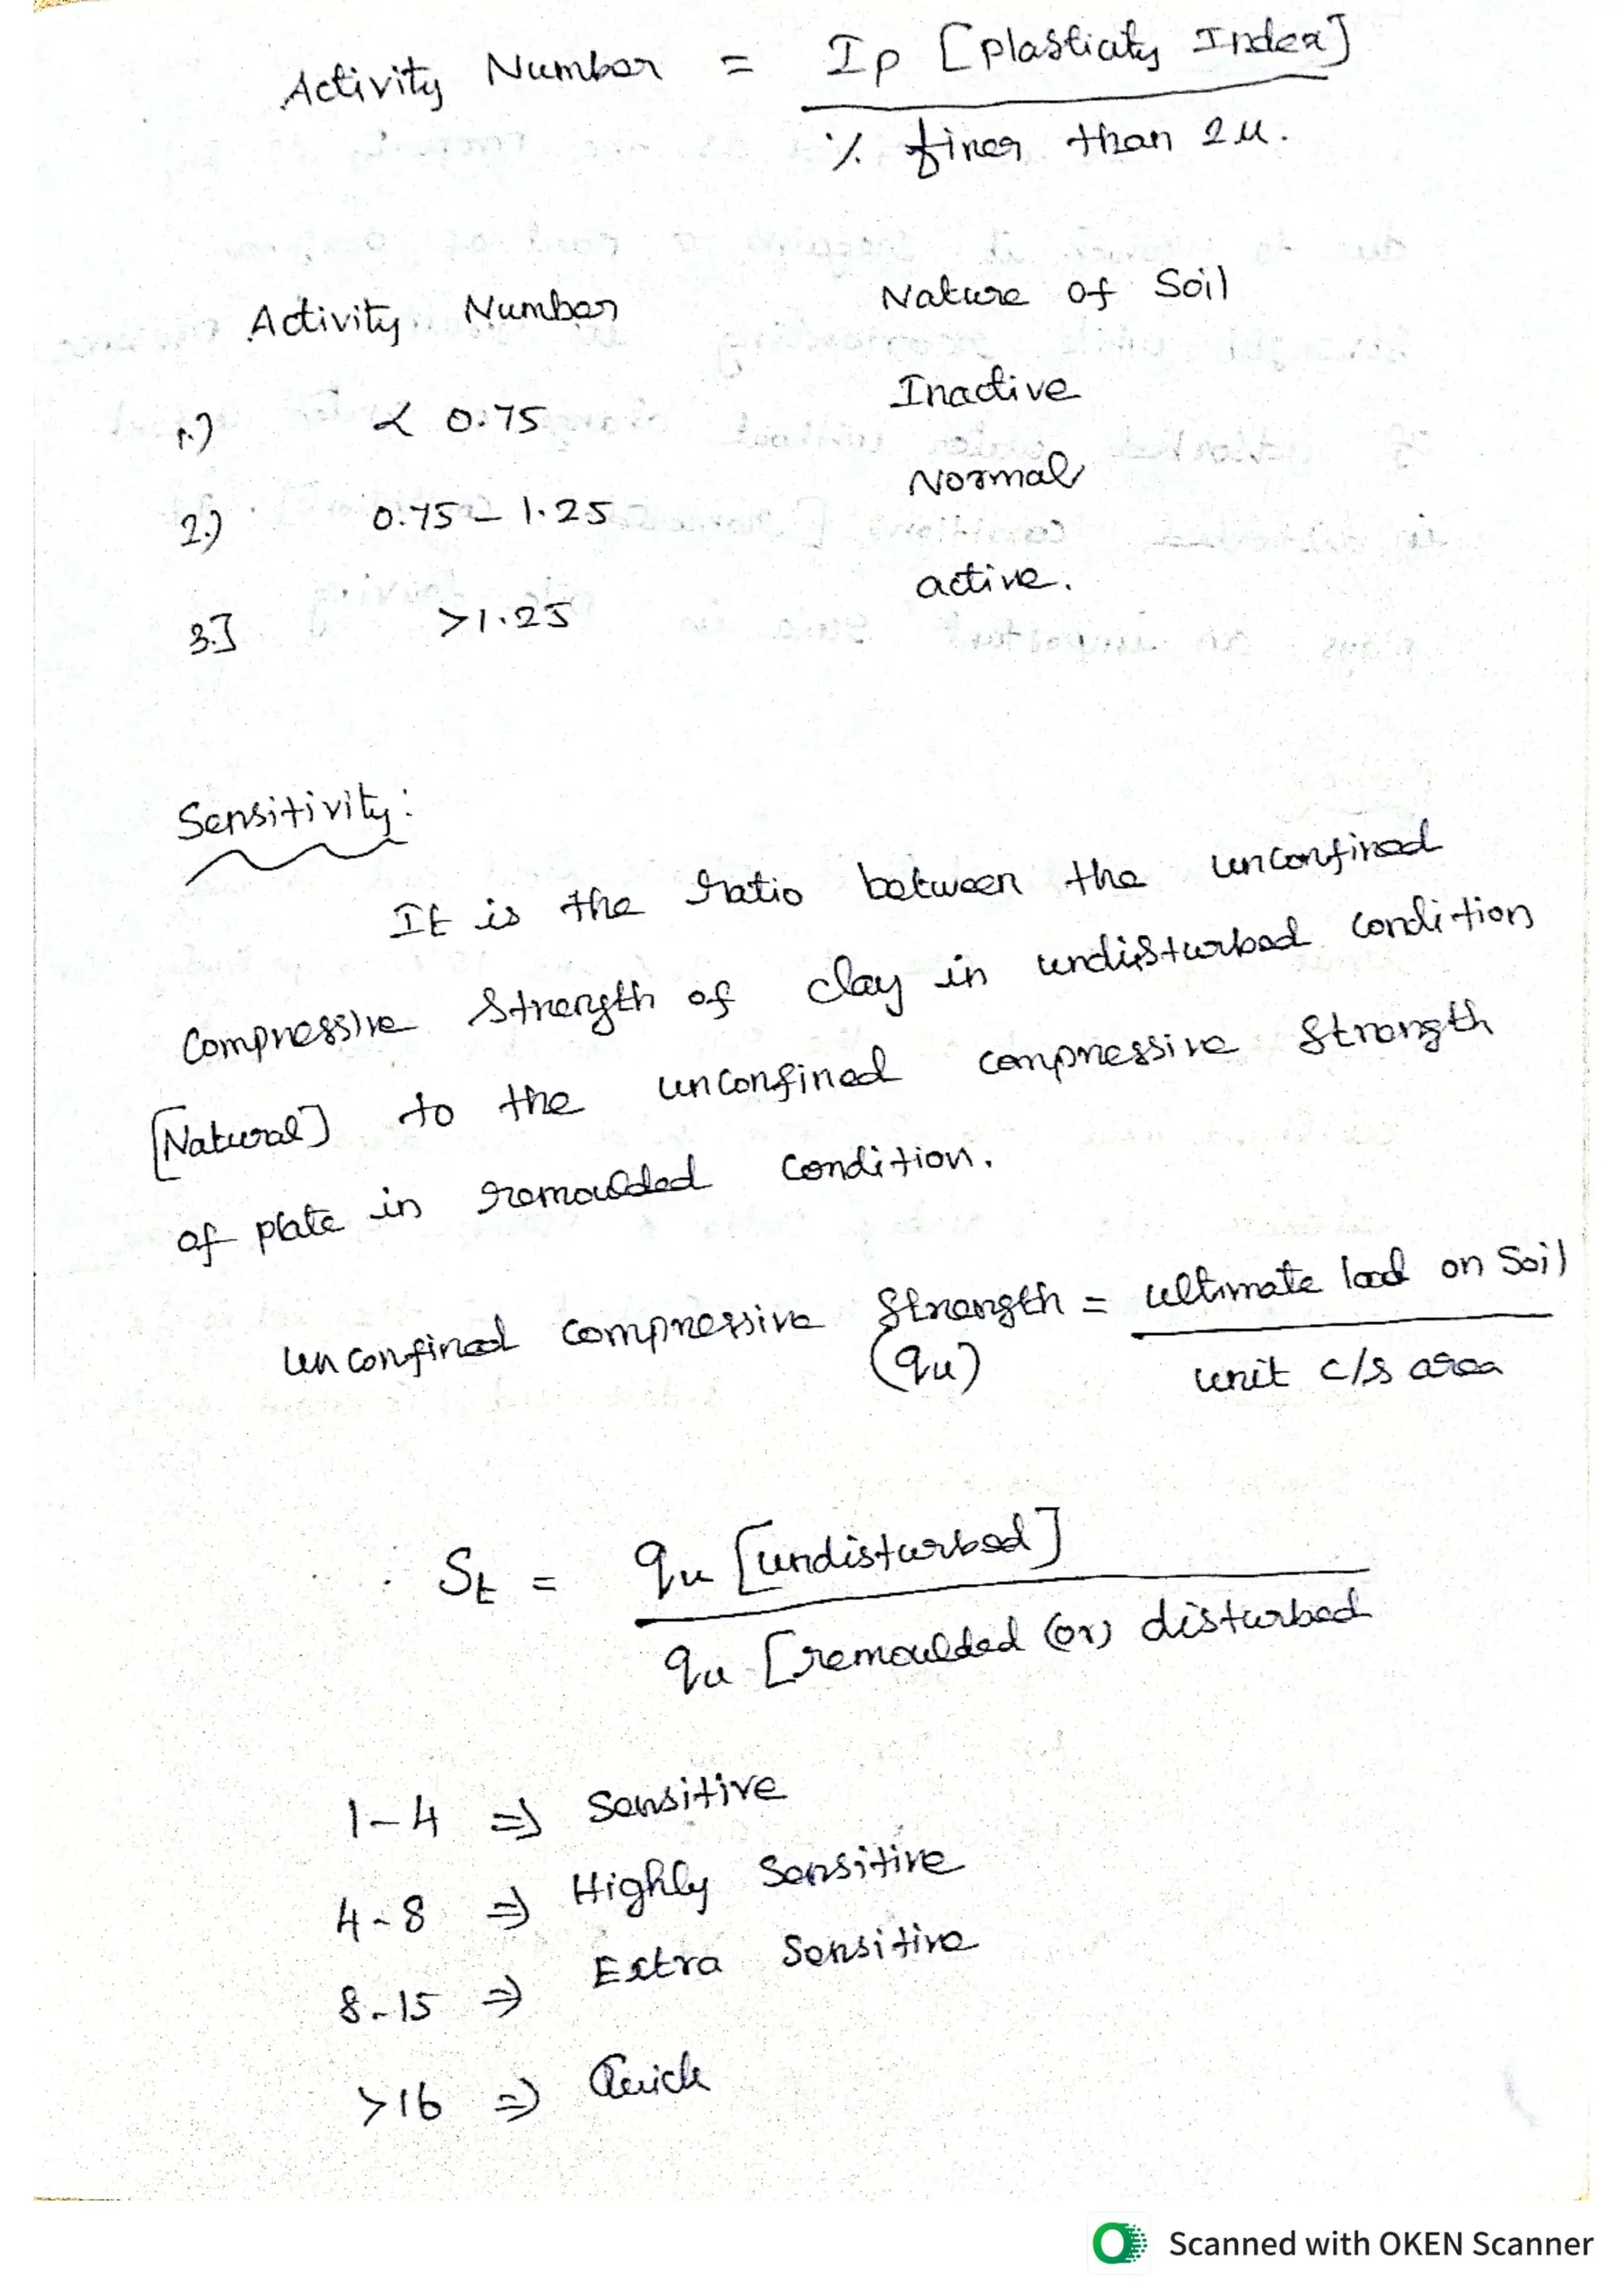 Activity Number = Ip [Plasticity Index]
% finer than 2µ.
Activity Number Nature of Soil
1.) < 0.75 Inactive
2.) 0.75 - 1.25 Normal
3.] >1.25 active.
Sensitivity:
It is the ratio between the unconfined
Compressive Strength of clay in undisturbed condition
[Natural] to the unconfined compressive Strength
of plate in remoulded condition.
unconfined compressive Strength = ultimate load on Soil
(qu) unit c/s area
St = qu [undisturbed]
qu [remoulded (or) disturbed
1-4 ⇒ Sensitive
4-8 ⇒ Highly Sensitive
8-15 ⇒ Extra Sensitive
>16 ⇒ Quick
Scanned with OKEN Scanner